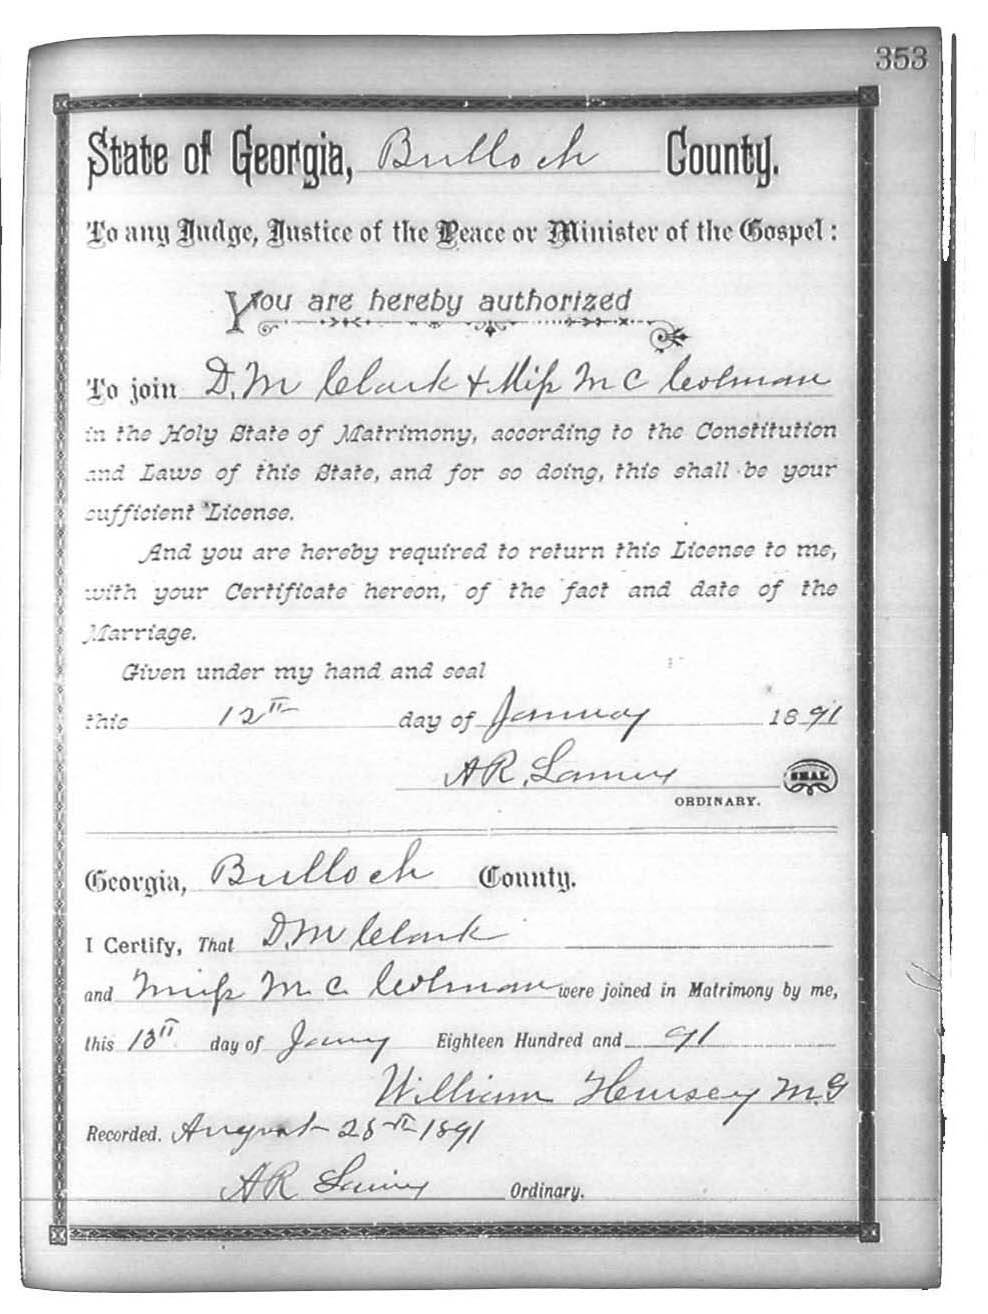 353
State of Georgia, Bulloch County.
To any Judge, Justice of the Peace or Minister of the Gospel:
You are hereby authorized
To join D. M Clark & Miss M C Colman
in the Holy State of Matrimony, according to the Constitution
and Laws of this State, and for so doing, this shall be your
sufficient License.
And you are hereby required to return this License to me,
with your Certificate hereon, of the fact and date of the
Marriage.
Given under my hand and seal
this 12th day of January 1891
A R, Lanier SEAL
ORDINARY.
Georgia, Bulloch County.
I Certify, That D. M Clark
and Miss M. C. Colman were joined in Matrimony by me,
this 13th day of Jany Eighteen Hundred and 91
William Hursey M.G
Recorded. August 1891
A R Lanier Ordinary.